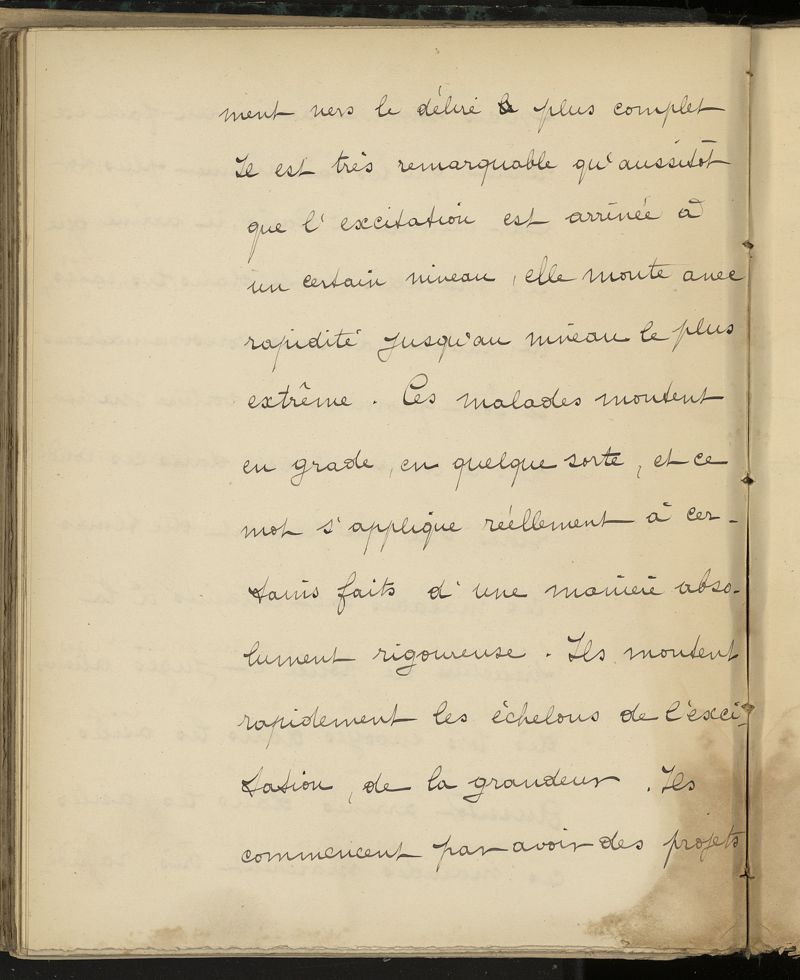 ment vers le délire le plus complet
Il est très remarquable qu'aussitôt
que l'excitation est arrivée à
un certain niveau, elle monte avec
rapidité jusqu'au niveau le plus
extrême. Ces malades montent
en grade, en quelque sorte, et ce
mot s'applique réellement à cer-
tains faits d'une manière abso-
lument rigoureuse. Ils montent
rapidement les échelons de l'exci-
tation, de la grandeur. Ils
commencent par avoir des projets